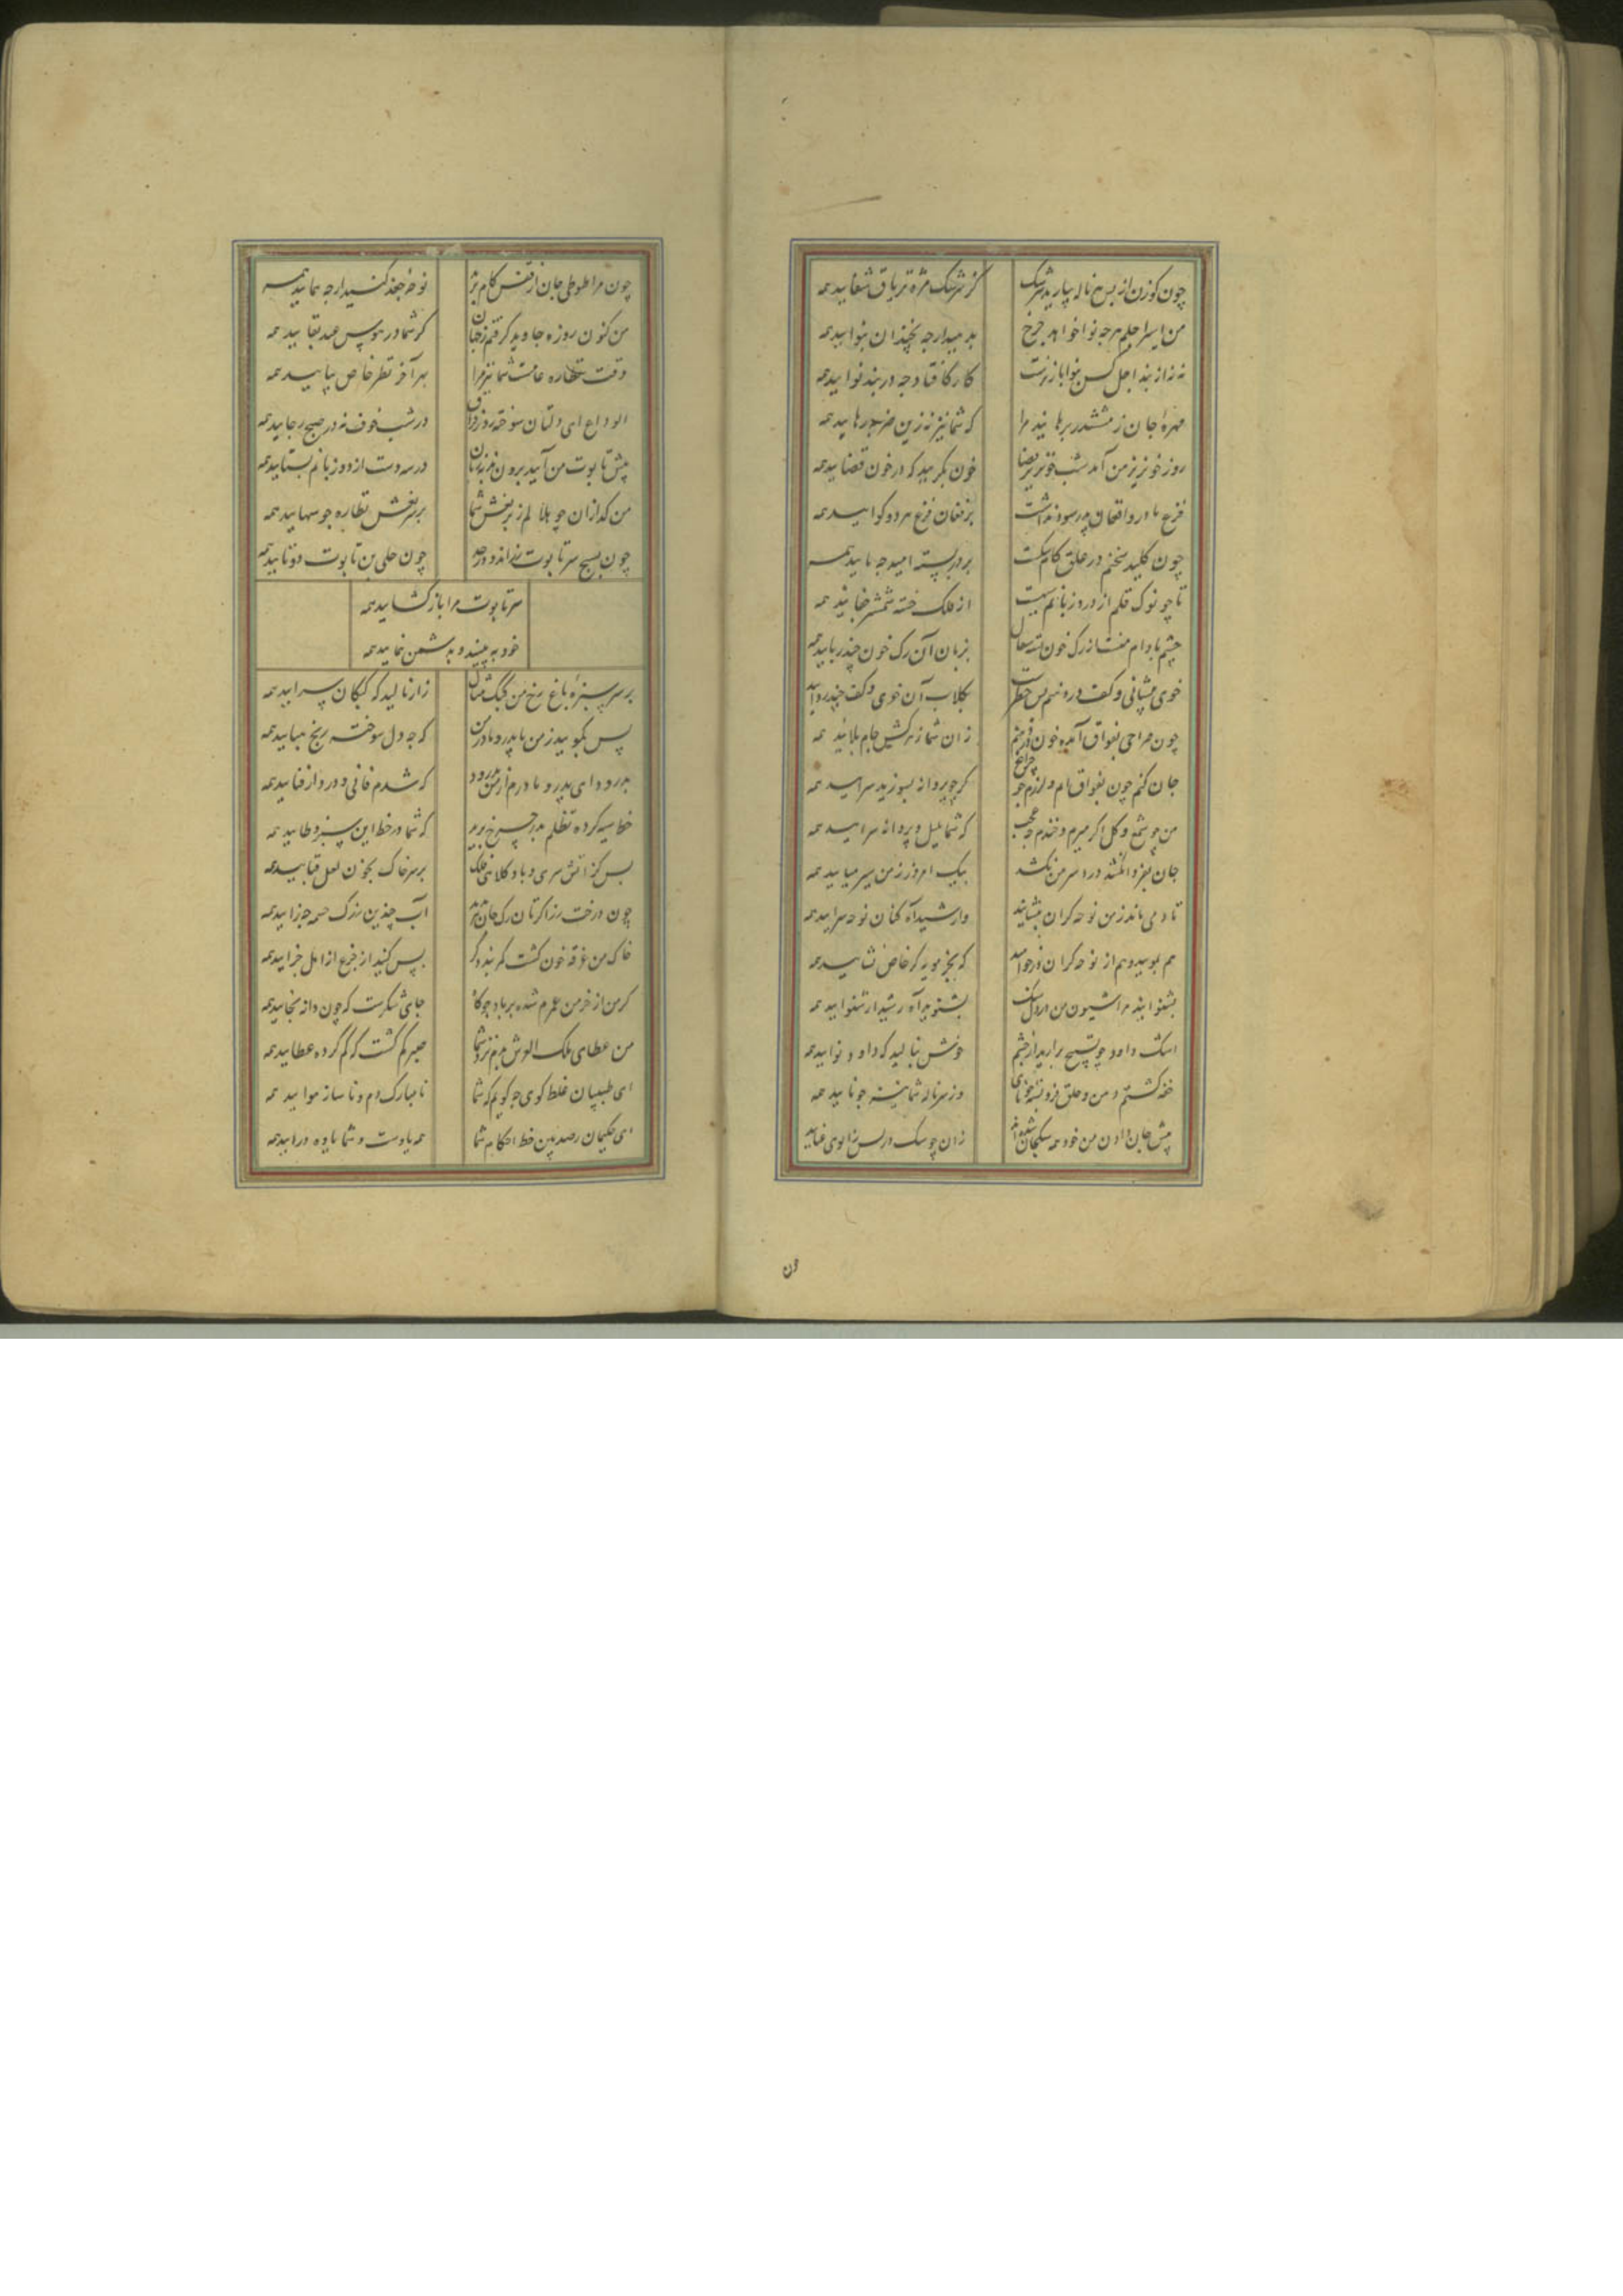 چون کوزن از پس هر ناله ببارید سرشک کز سرشک مژه تریاق شفایید همه
من اسیر اجلم هرچه نوا خواهد چرخ بدهید ارچه نه چندان بنوایید همه
نه نه از بند اجل کس بنوا باز نرست کار کافتاد چه در بند نوایید همه
مهرهٔ جان ز مششدر برهانید مرا که شما نیز نه زین ضربه رهایید همه
روز خونریز من آمد ز شبیخون قضا خون بگریید که در خون قضایید همه
فزع مادر و افغان پدر سود نداشت بر فغان و فزع هر دو گوایید همه
چون کلید سخنم در غلق کام شکست بر در بسته امید چه پایید همه
تا چو نوک قلم از درد زبانم سیه است از فلک خسته شمشیر جفایید همه
چشم بادام منست از رگ خون پسته مثال بزبان آن رگ خون چند ربایید همه
خوی پیشانی و کف در دهنم بس خطر است بگلاب آن خوی و کف چند زدایید
چون صراحی بفواق آمده خون در دهنم زان شما زهرکش جام بلایید همه
جان کنم چون بفواق ایم و لرزم چو چراغ گر چو پروانه بسوزید سزایید همه
من چو شمع و گل اگر میرم و خندم چه عجب که شما بلبل و پروانه سرایید همه
جان بفردا نکشد درد سر من بکشد بیک امروز ز من سیر میایید همه
تا دمی ماند ز من نوحه گران بنشانید وا رشیداه کنان نوحه سرایید همه
هم بمویید و هم از نوحه گران درخواهید که بجز مویه گر خاص نشایید همه
بشنوانید مرا شیون من از دل سنگ بشنوید آه رشید ار شنوایید همه
اشک داود چو تسبیح ببارید از چشم خوش بنالید که داود نوایید همه
خفه گشتم دهن و حلق فروبسته چو نای وز سر ناله شما نیز چو نایید همه
پیش جان دادن من خود همه سگجان شده‌اید زان چو سگ در پس زانوی عنایید
ون
چون مرا طوطی جان از قفس کام پرید نوحهٔ جغد کنید ار چه همایید همه
من کنون روزه جاوید گرفتم ز جهان گر شما در هوس عید بقایید همه
وقت نظاره عامست شما نیز مرا بهر آخر نظر خاص بیایید همه
الوداع ای دلتان سوخته روز فراق در شب خوف نه در صبح رجایید همه
پیش تابوت من آیید برون ندبه زنان در سه دست از دو زبانم بستایید همه
من گدازان چو هلالم ز بر نعش و شما بر سر نعش نظاره چو سهایید همه
چون نسیج سر تابوت زر اندود رخید چون حلی بن تابوت دوتایید همه
سر تابوت مرا باز گشایید همه
خود ببینید و بدشمن بنمایید همه
بر سر سبزه باغ رخ من کبک مثال زار نالید که کبکان سرایید همه
پس بگویید ز من با پدر و مادر من که چه دل سوخته رنج هبایید همه
بدرود ای پدر و مادرم از من بدرود که شدم فانی و در دار فنایید همه
خط سیه کرده تظلم بدر چرخ برید که شما در خط این سبز وطایید همه
بس کز آتش سری و باد کلاهی فلک بر سر خاک بخون لعل قبایید همه
چون درخت رز اگرتان رگ جان ببرند آب چندین ز رگ چشم چه زایید همه
خاک من غرقه خون گشت مگریید دگر بس کنید از جزع ار اهل جزایید همه
که من از خرمن عمرم شده بر باد چو کاه جای شکرست که چون دانه بجایید همه
من عطای ملک العرش بدم نزد شما صبرم گم گشت که گم کرده عطایید همه
ای طبیبان غلط گوی چه گویم که شما نامبارک دم و ناساز دوایید همه
ای حکیمان رصد بین خط احکام شما همه یاوست و شما یاوه درایید همه